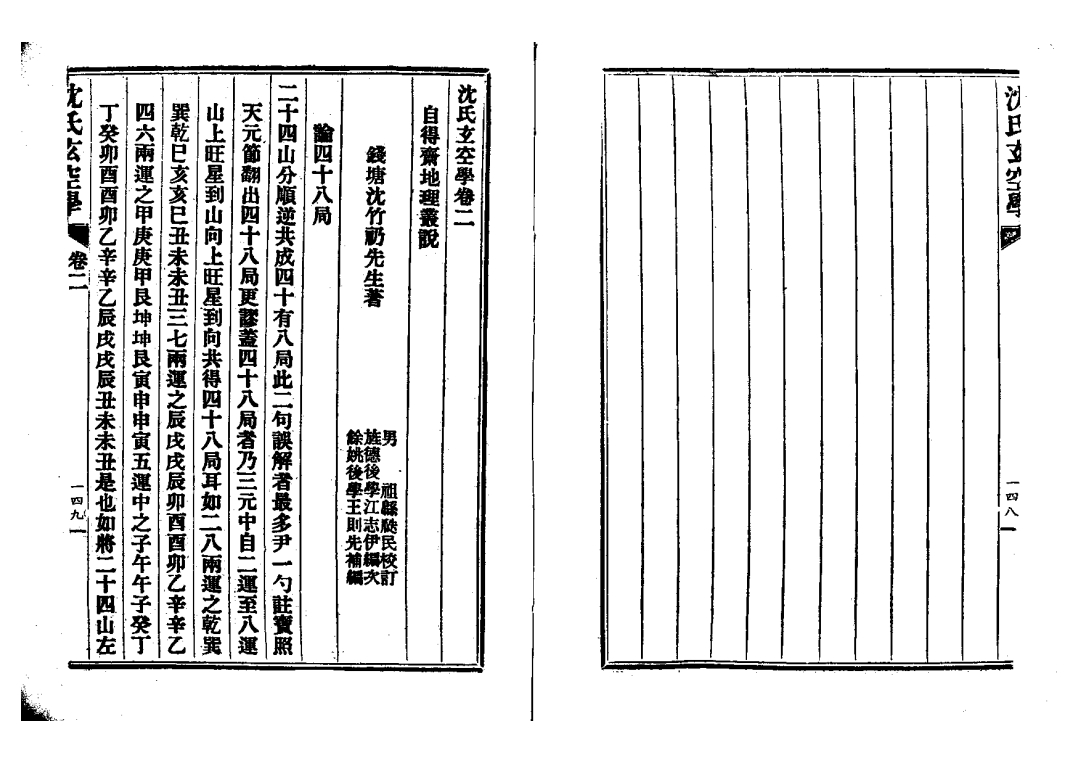 沈氏玄空學
一四八
沈氏玄空學卷二
自得齋地理叢說
錢塘沈竹礽先生著
男 祖緜瓞民校訂
旌德後學江志伊編次
餘姚後學王則先補編
論四十八局
二十四山分順逆共成四十有八局此二句誤解者最多尹一勺註寶照
天元節翻出四十八局更謬蓋四十八局者乃三元中自二運至八運
山上旺星到山向上旺星到向共得四十八局耳如二八兩運之乾巽
巽乾巳亥亥巳丑未未丑三七兩運之辰戌戌辰卯酉酉卯乙辛辛乙
四六兩運之甲庚庚甲艮坤坤艮寅申申寅五運中之子午午子癸丁
丁癸卯酉酉卯乙辛辛乙辰戌戌辰丑未未丑是也如將二十四山左
沈氏玄空學
卷二
一四九